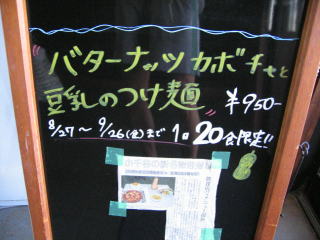 "バターナッツカボチャと
豆乳のつけ麺" ¥950-
8/27～9/26(金)まで 1日20食限定!!